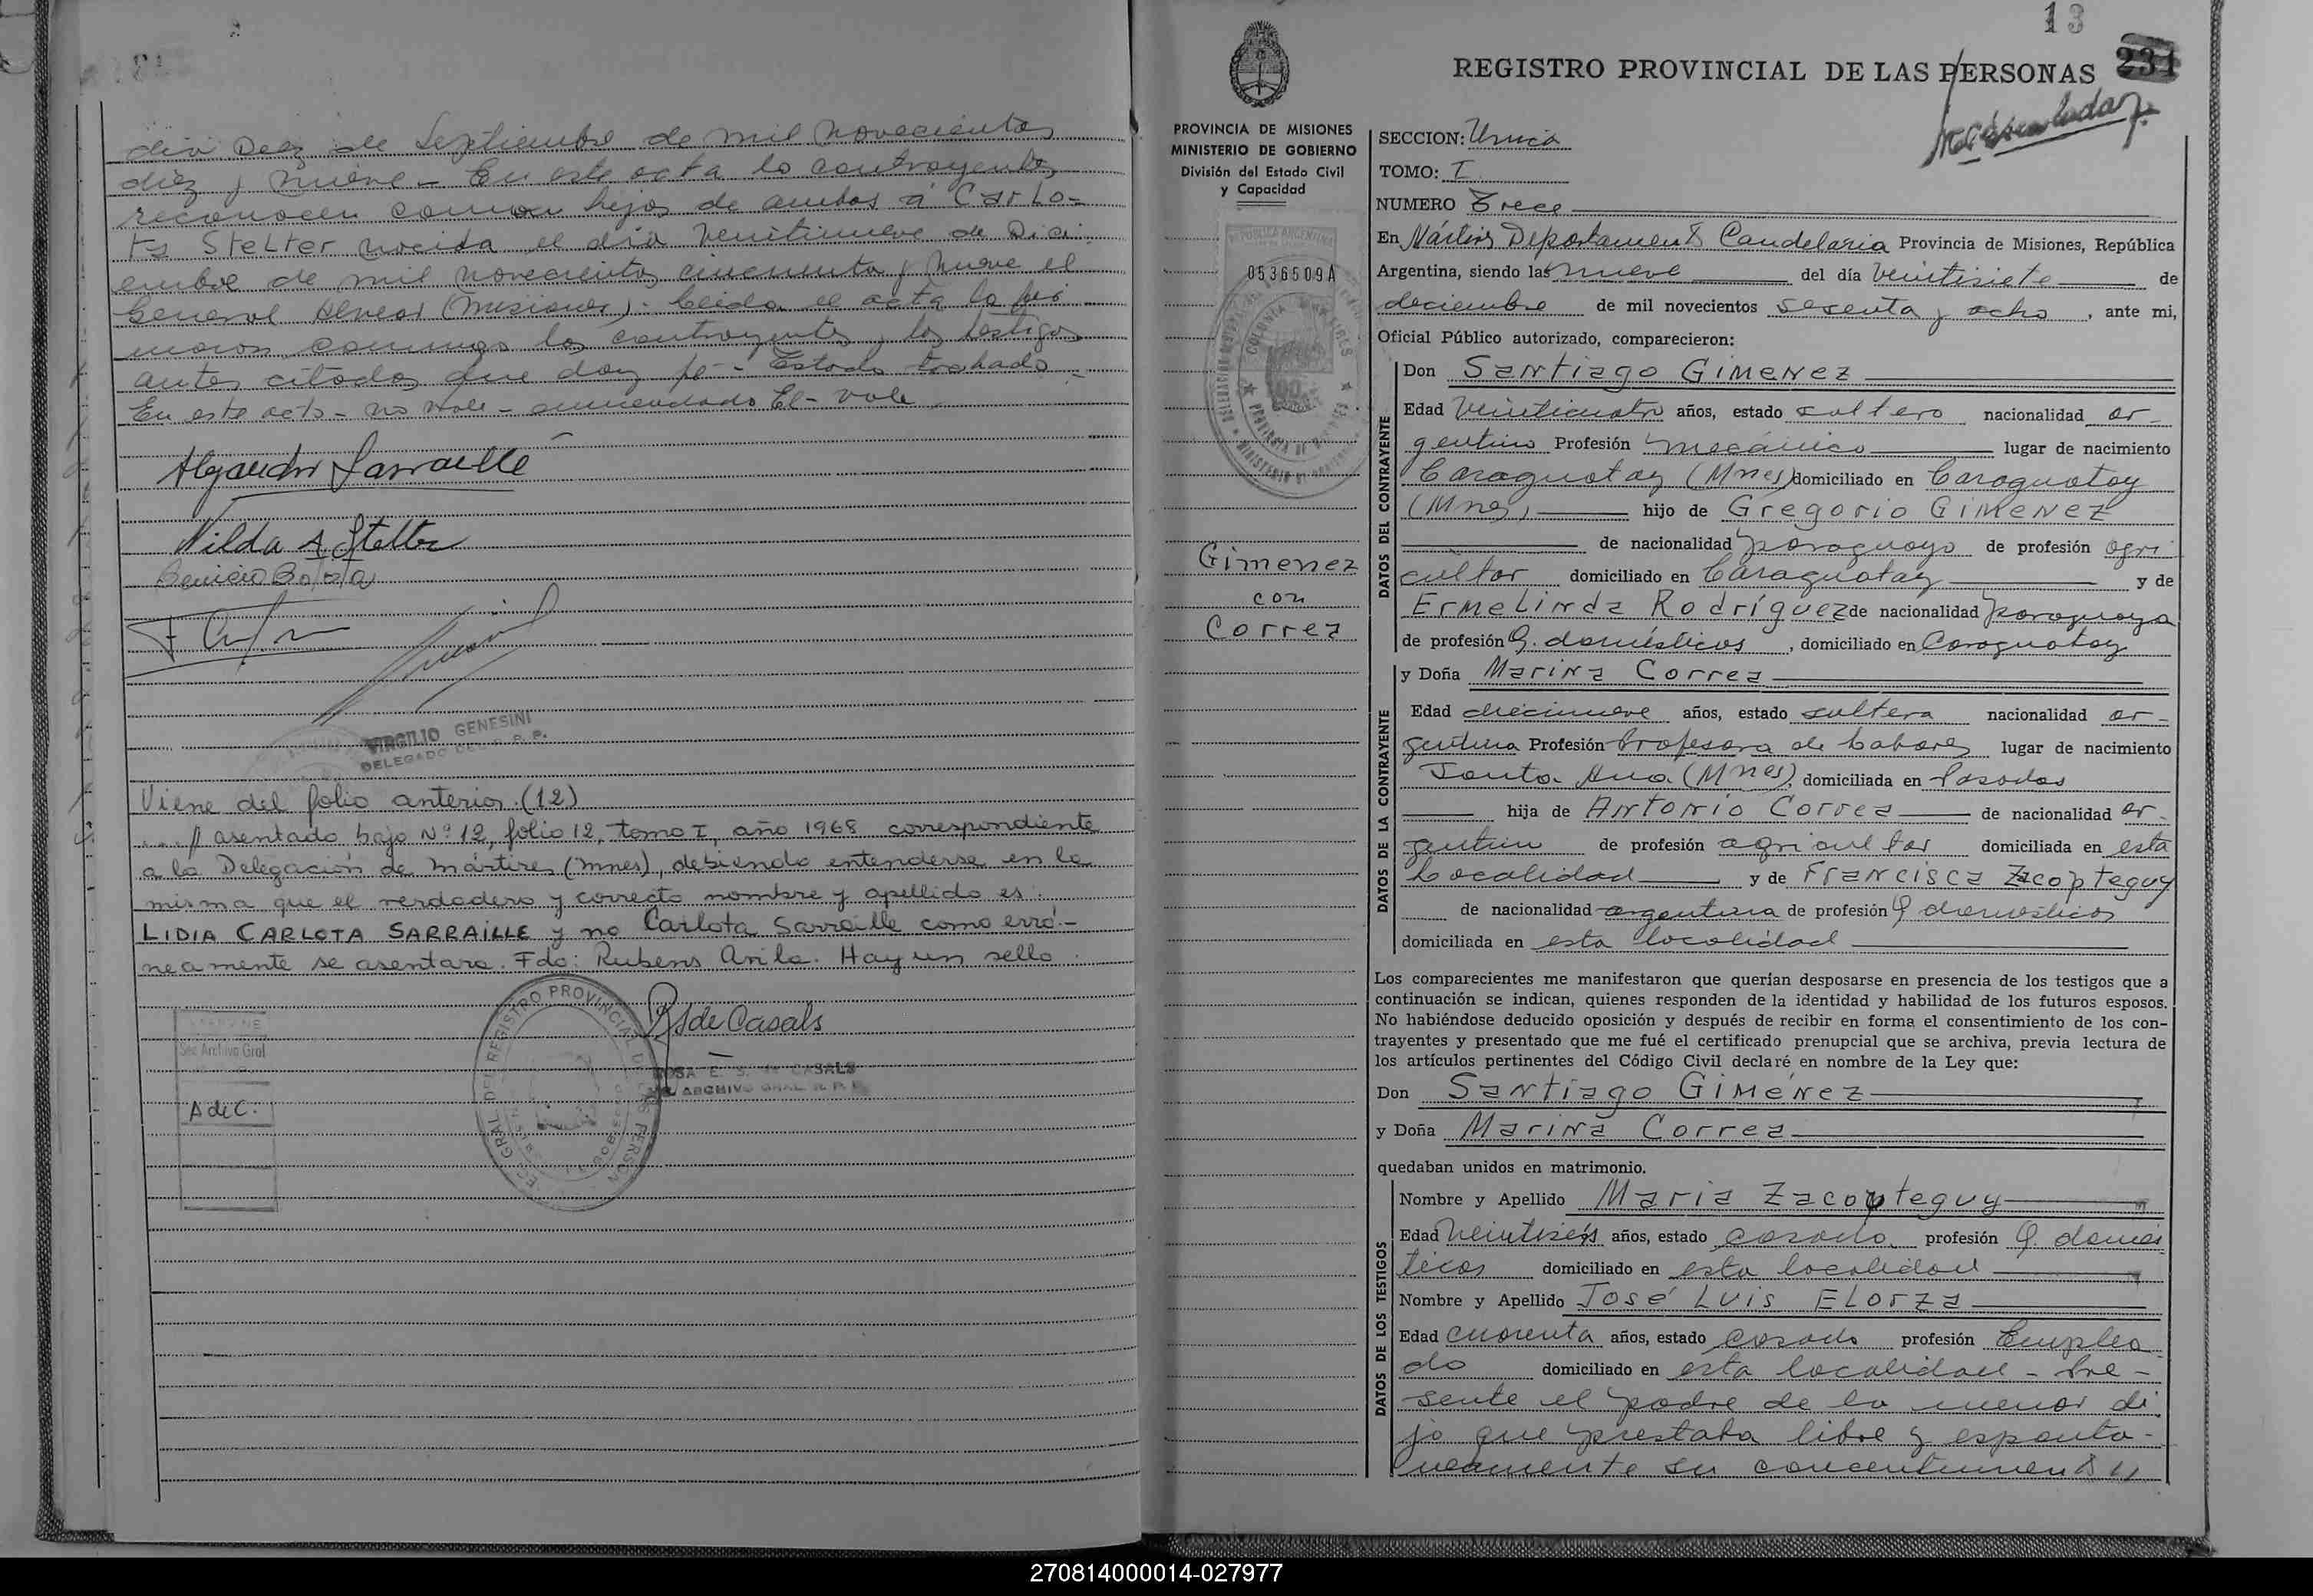 dia Diez de Septiembre de mil novecientos
diez y nueve - En este acta lo contrayentes
reconocen como hijos de ambos á Carlo-
ta Stelter nacida el dia veintinueve de Dici-
embre de mil novecientos cincuenta y nueve el
General Alvear (Misiones). Leida el acta la fir
maron conmigo los contrayentes y los testigos
antes citados que doy fé - Estado tachado -
En este acto - no vale - enmendado El - vale
Alejandro Sarraille
Nilda A Stelter
VIRGILIO GENESINI
DELEGADO DEL R. P. P.
Viene del folio anterior. (12)
....// asentado bajo Nº 12, folio 12, tomo I, año 1968 correspondiente
a la Delegación de Mártires (Mnes), debiendo entenderse en la
misma que el verdadero y correcto nombre y apellido es:
LIDIA CARLOTA SARRAILLE y no Carlota Sarraille como erró-
neamente se asentara. Fdo: Rubens Avila. Hay un sello
R S de Casals
ROSA E. S. de CASALS
ARCHIVO GRAL R. P. P.
Sec Archivo Gral
A de C.
13
231
REGISTRO PROVINCIAL DE LAS PERSONAS
PROVINCIA DE MISIONES
MINISTERIO DE GOBIERNO
División del Estado Civil
y Capacidad
REPUBLICA ARGENTINA
0536509A
Gimenez
con
Correa
SECCION: Unica
TOMO: I
NUMERO Trece
En Mártires Departamento Candelaria Provincia de Misiones, República
Argentina, siendo las nueve del día veintisiete de
diciembre de mil novecientos sesenta y ocho, ante mi,
Oficial Público autorizado, comparecieron:
DATOS DEL CONTRAYENTE
Don Santiago Gimenez
Edad Veinticuatro años, estado soltero nacionalidad ar-
gentino Profesión mecánico lugar de nacimiento
Caraguatay (Mnes) domiciliado en Caraguatay
(Mnes) hijo de Gregorio Gimenez
de nacionalidad paraguayo de profesión agri
cultor domiciliado en Caraguatay y de
Ermelinda Rodríguez de nacionalidad paraguaya
de profesión Q. domésticos, domiciliado en Caraguatay
DATOS DE LA CONTRAYENTE
y Doña Marina Correa
Edad diecinueve años, estado soltera nacionalidad ar-
gentina Profesión Profesora de Labores lugar de nacimiento
Santa Ana (Mnes), domiciliada en Posadas
hija de Antonio Correa de nacionalidad ar-
gentino de profesión agricultor domiciliada en esta
Localidad y de Francisca Zacopteguy
de nacionalidad argentina de profesión Q domésticos
domiciliada en esta localidad
Los comparecientes me manifestaron que querían desposarse en presencia de los testigos que a
continuación se indican, quienes responden de la identidad y habilidad de los futuros esposos.
No habiéndose deducido oposición y después de recibir en forma el consentimiento de los con-
trayentes y presentado que me fué el certificado prenupcial que se archiva, previa lectura de
los artículos pertinentes del Código Civil declaré en nombre de la Ley que:
Don Santiago Giménez
y Doña Marina Correa
quedaban unidos en matrimonio.
DATOS DE LOS TESTIGOS
Nombre y Apellido Maria Zacopteguy
Edad Veintiséis años, estado casada profesión Q. domés
ticos domiciliado en esta localidad
Nombre y Apellido José Luis Elorza
Edad cuarenta años, estado casado profesión Emplea
do domiciliado en esta localidad - Pre-
sente el padre de la menor di
jo que prestaba libre y espontá-
neamente su concentimiento y
270814000014-027977